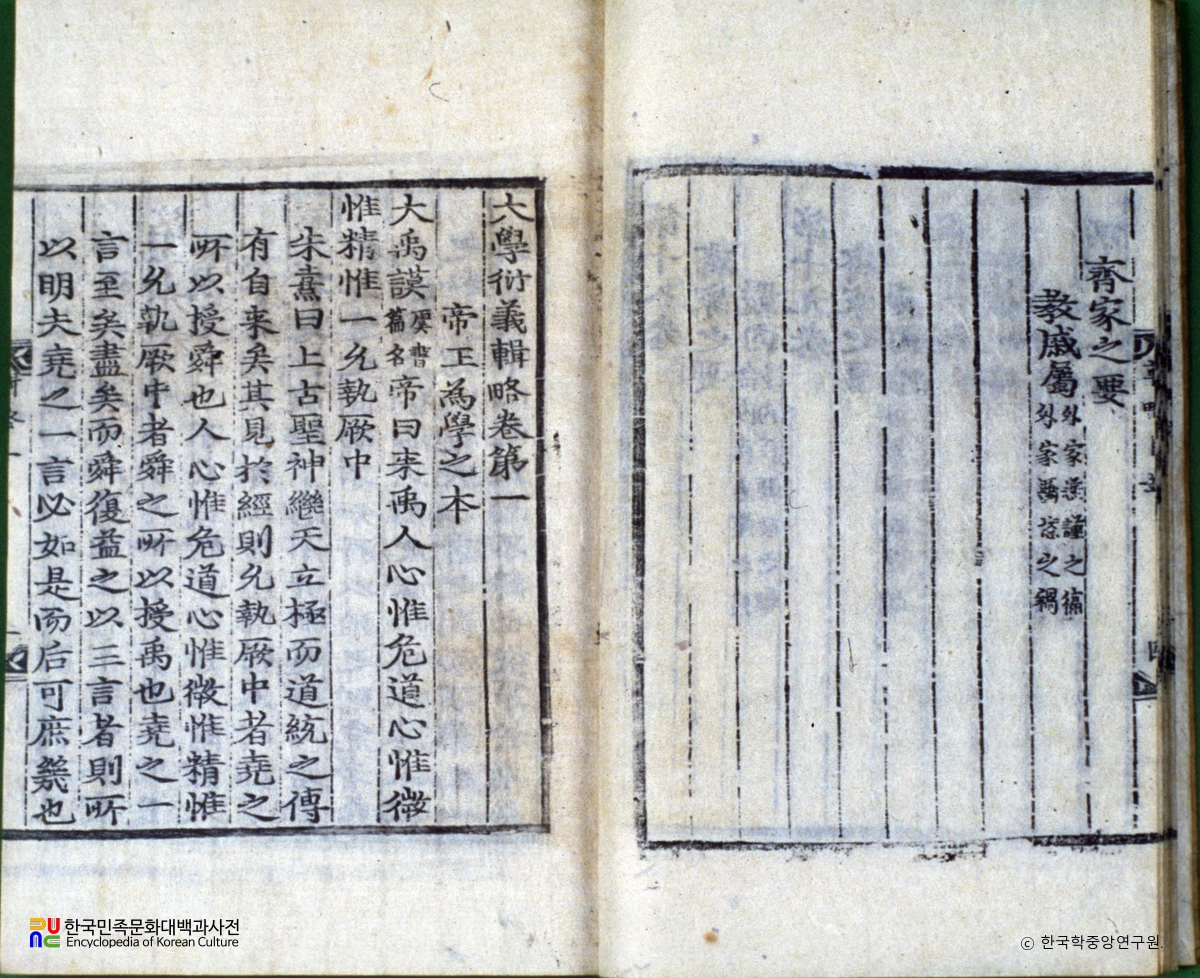 齊家之要
教戚屬 外家謙謹之福 外家驕恣之禍
大學衍義輯略卷第一
帝王為學之本
大禹謨 虞書篇名 帝曰来禹人心惟危道心惟微
惟精惟一允執厥中
朱熹曰上古聖神繼天立極而道統之傳
有自来矣其見於經則允執厥中者堯之
所以授舜也人心惟危道心惟微惟精惟
一允執厥中者舜之所以授禹也堯之一
言至矣盡矣而舜復益之以三言者則所
以明夫堯之一言必如是而后可庶幾也
한국민족문화대백과사전
Encyclopedia of Korean Culture
© 한국학중앙연구원